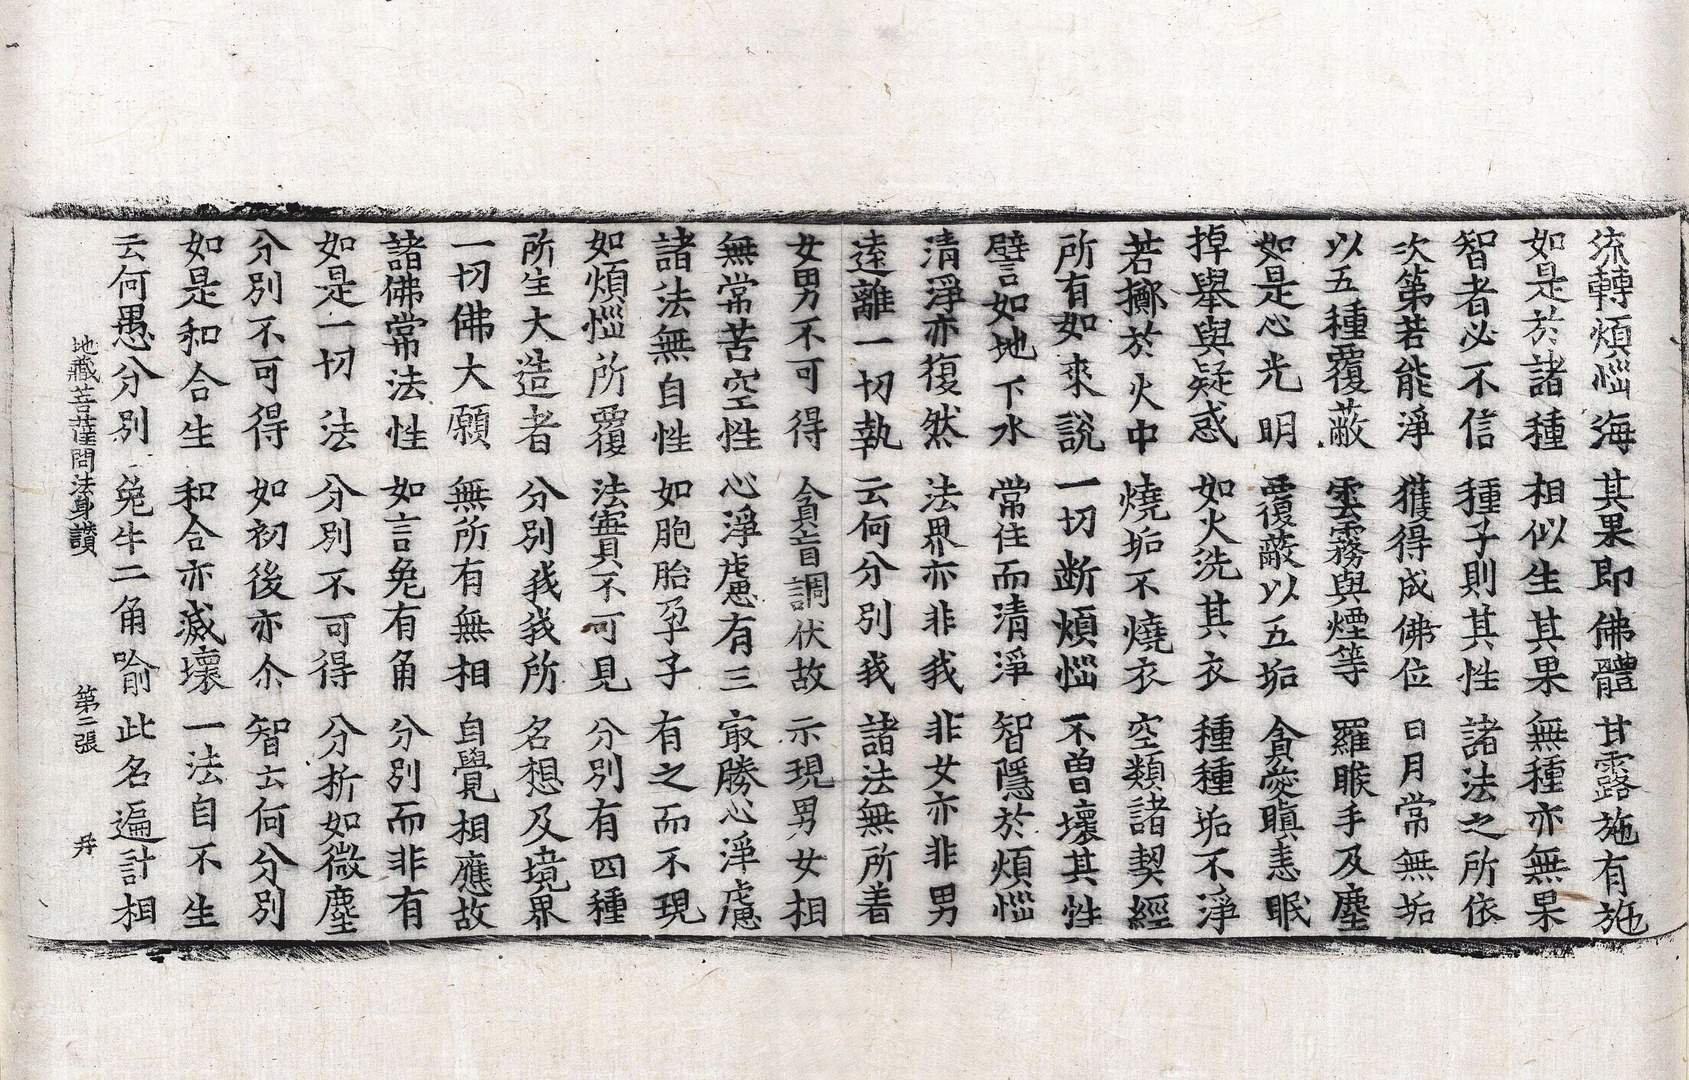 流轉煩惱海 其果即佛體 甘露施有施
如是於諸種 相似生其果 無種亦無果
智者必不信 種子則其性 諸法之所依
次第若能淨 獲得成佛位 日月常無垢
以五種覆蔽 雲霧與煙等 羅睺手及塵
如是心光明 覆蔽以五垢 貪愛瞋恚眠
掉舉與疑惑 如火洗其衣 種種垢不淨
若擲於火中 燒垢不燒衣 空類諸契經
所有如來說 一切断煩惱 不曾壞其性
譬如地下水 常住而清淨 智隱於煩惱
清淨亦復然 法界亦非我 非女亦非男
遠離一切執 云何分別我 諸法無所着
女男不可得 貪盲調伏故 示現男女相
無常苦空性 心淨慮有三 冣勝心淨慮
諸法無自性 如胞胎孕子 有之而不現
如煩惱所覆 法實不可見 分別有四種
所生大造者 分別我我所 名想及境界
一切佛大願 無所有無相 自覺相應故
諸佛常法性 如言兔有角 分別而非有
如是一切法 分別不可得 分析如微塵
分別不可得 如初後亦尒 智云何分別
如是和合生 和合亦滅壞 一法自不生
云何愚分別 兔牛二角喻 此名遍計相
地藏菩薩問法身讃 第二張